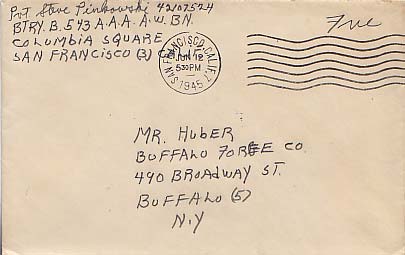 Pvt Steve Pinkowski 42107524
BTRY. B. 543 A.A.A. A.W. BN.
COLUMBIA SQUARE
SAN FRANCISCO (3)
Free
SAN FRANCISCO, CALIF.
JUN 12
530 PM
1945
MR. HUBER
BUFFALO FORGE CO.
490 BROADWAY ST.
BUFFALO (5)
N.Y